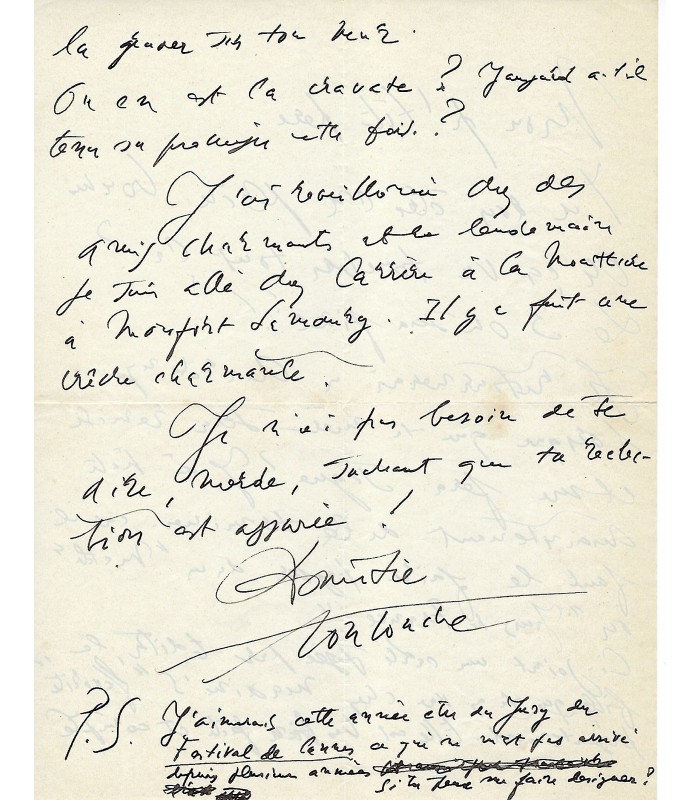 la graver sur ton
Où en est la cravate ? a-t-il
tenu sa promesse cette fois ?
J'ai réveillonné chez des
amis charmants et le lendemain
je suis allé chez Carrère à la
à Monfort Lamaury. Il y a fait une
crèche charmante.
Je n'ai pas besoin de te
dire, merde, sachant que ta réélec-
tion est assurée !
Amitié
P.S. J'aimerais cette année être du Jury du
Festival de Cannes ce qui ne m'est pas arrivé
depuis plusieurs années
si tu peux me faire désigner ?